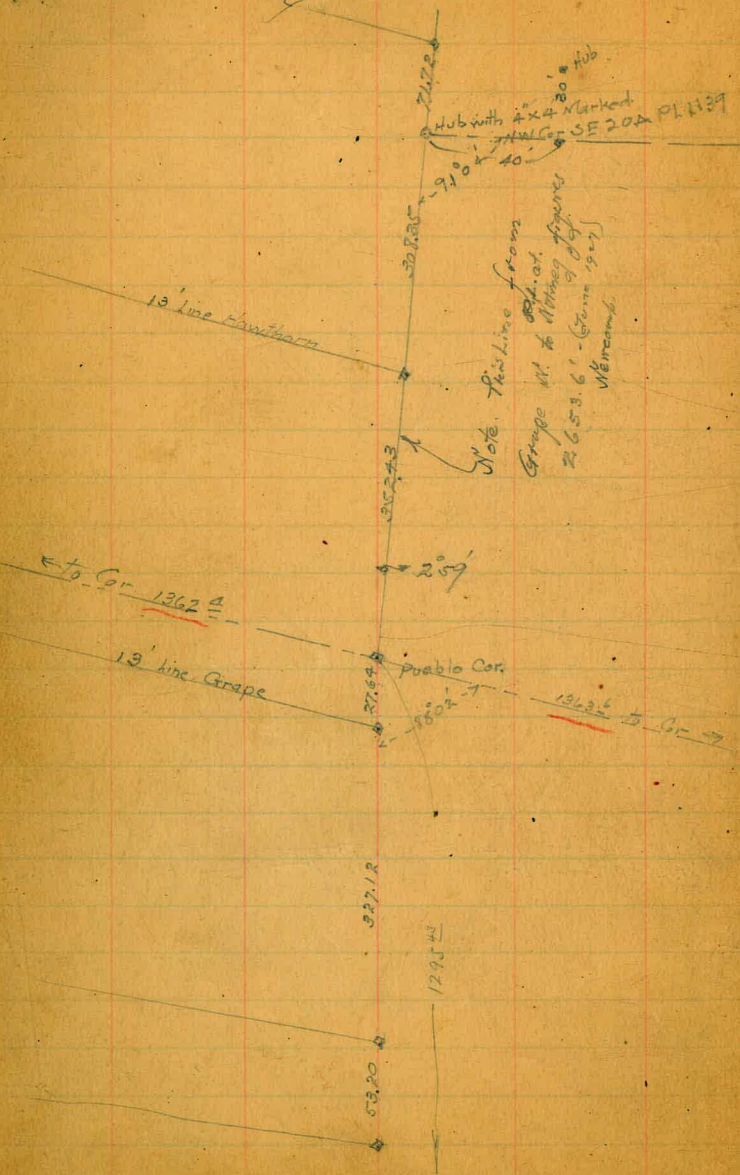 71.72
Hub
30'
Hub with 4"x4" Marked
NW Cor SE 20A PL 1139
40'
91° 04'
308.35
13' Line Hawthorn
Note. This Line from
Grape N. to Nutmeg figures
2653.6' - (June 1927)
Newcomb.
352.43
2° 59'
to Cor 1362.4
Pueblo Cor.
13' Line Grape
27.64
1363.6 to Cor
327.12
1295
53.20